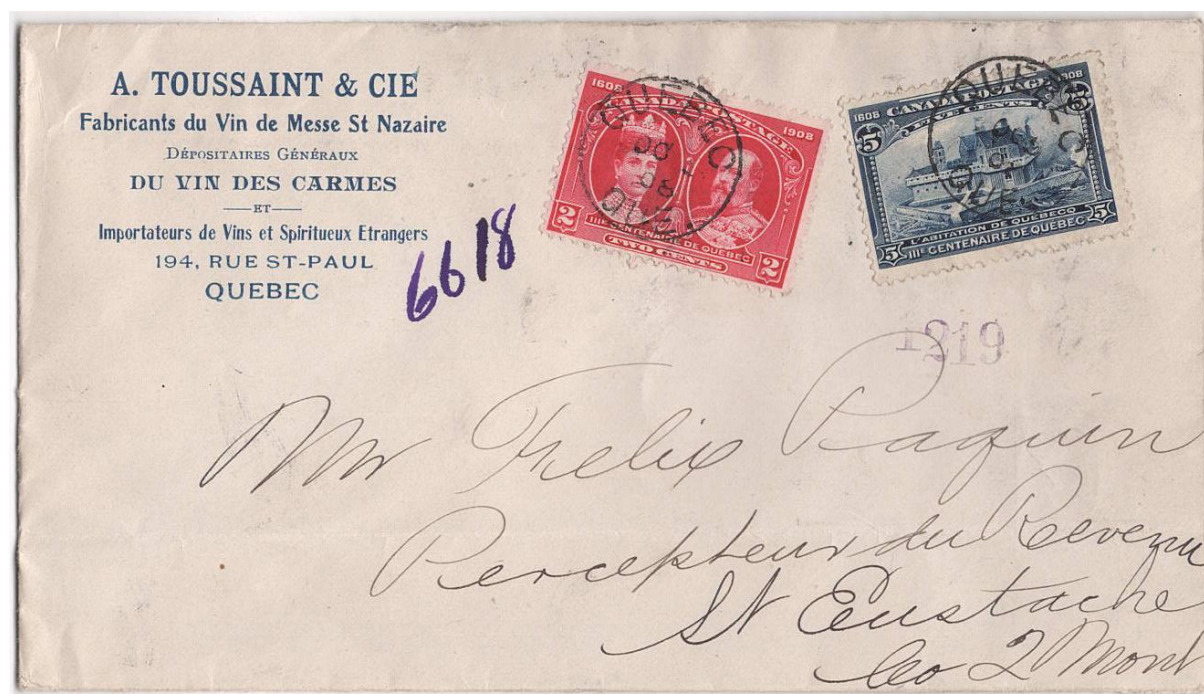 A. TOUSSAINT & CIE
Fabricants du Vin de Messe St Nazaire
DÉPOSITAIRES GÉNÉRAUX
DU VIN DES CARMES
ET
Importateurs de Vins et Spiritueux Etrangers
194, RUE ST-PAUL
QUEBEC
6618
1608 CANADA POSTAGE 1908
IIIe CENTENAIRE DE QUEBEC
2 TWO CENTS 2
QUEBEC
QUE
1608 CANADA POSTAGE 1908
5 FIVE CENTS 5
L'ABITATION DE QUEBECQ
5 IIIe CENTENAIRE DE QUEBEC 5
QUEBEC
QUE
1219
Mr Felix Paquin
Percepteur du Revenu
St Eustache
Co 2 Mont